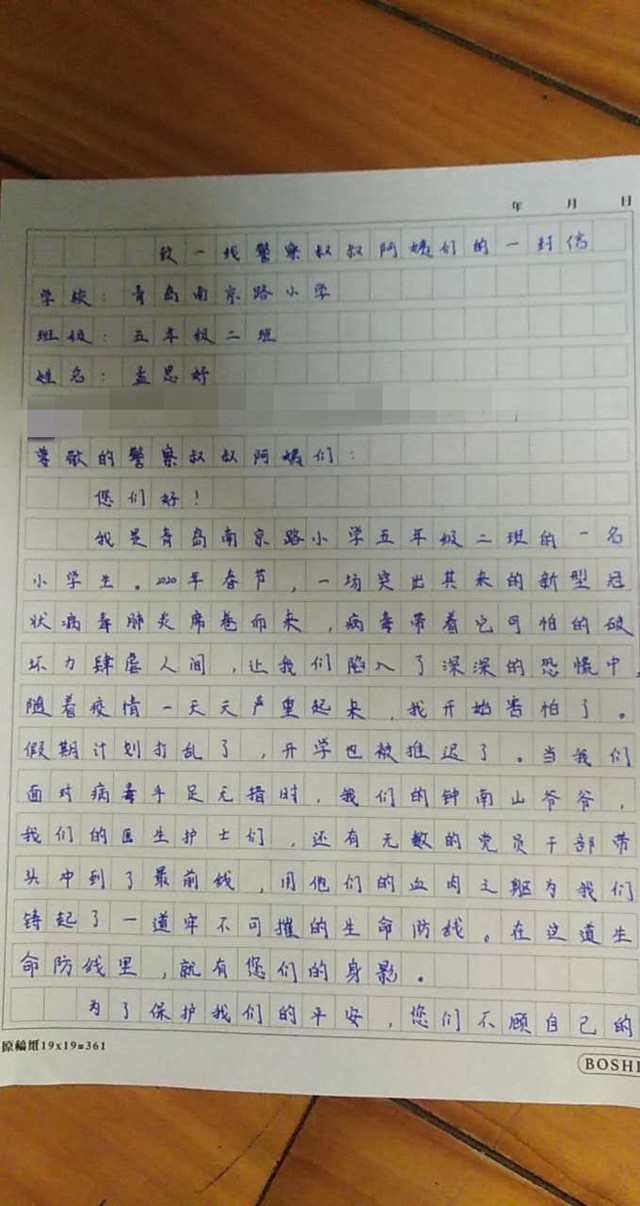 年 月 日
致一线警察叔叔阿姨们的一封信
学校：青岛南京路小学
班级：五年级二班
姓名：孟思妤
尊敬的警察叔叔阿姨们：
您们好！
我是青岛南京路小学五年级二班的一名
小学生。2020年春节，一场突出其来的新型冠
状病毒肺炎席卷而来，病毒带着它可怕的破
坏力肆虐人间，让我们陷入了深深的恐慌中，
随着疫情一天天严重起来，我开始害怕了。
假期计划打乱了，开学也被推迟了。当我们
面对病毒手足无措时，我们的钟南山爷爷，
我们的医生护士们，还有无数的党员干部带
头冲到了最前线，用他们的血肉之躯为我们
铸起了一道牢不可摧的生命防线。在这道生
命防线里，就有您们的身影。
为了保护我们的平安，您们不顾自己的
原稿纸19x19=361
BOSHI